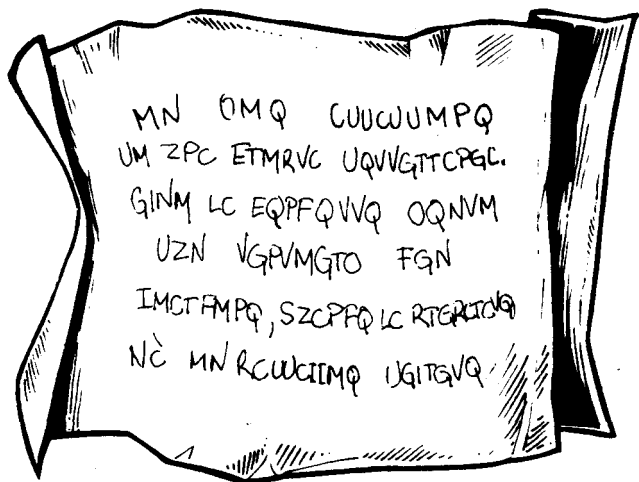 MN OMQ CUUCUUMPQ
UM ZPC ETMRVC UQVVGTTCPGC.
GINM LC EQPFQVVQ OQNVM
UZN VGPVMGTO FGN
IMCTFMPQ, SZCPFQ LC RTGRCTCVQ
NC̀ MN RCUUCIIMQ UGITGVQ